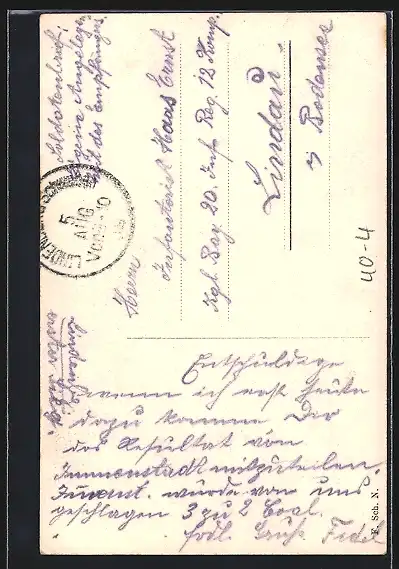 Soldatenbrief.
Eigene Angelegen
heit des Empfängers
LINDENBERG
5
AUG
VORM
10
Herrn
Infanterist Haas Ernst
Kgl. Bay 20. Inf Reg 12 Komp.
Lindau.
Bodensee
40-4
Entschuldige
wenn ich erst heute
dazu komme Dir
das Resultat von
Immenstadt mitzuteilen.
Immenst. wurde von uns
geschlagen 3 zu 2 Goal.
frdl. Gruß Fidel
E. Sch. N.